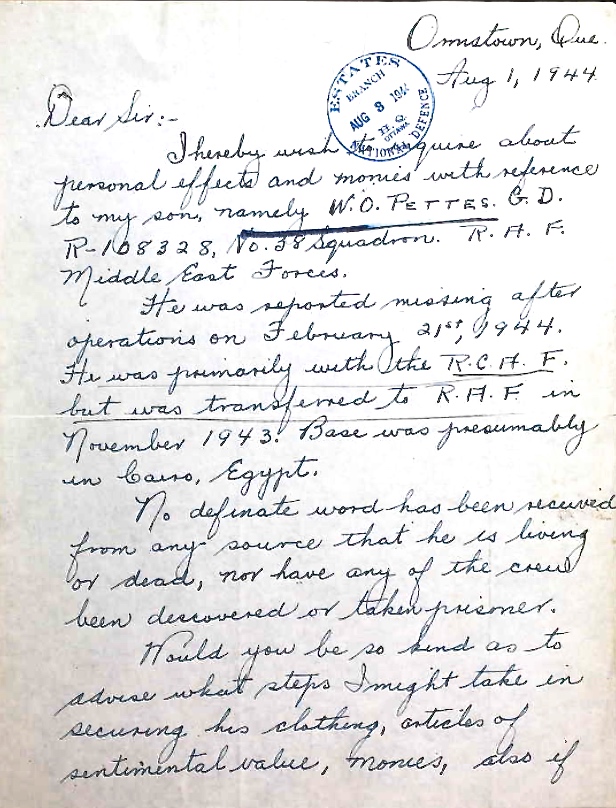 Ormstown, Que.
Aug 1, 1944
ESTATES
BRANCH
AUG 3 194
OTTAWA
NATIONAL DEFENCE
Dear Sir:-
I hereby wish to enquire about
personal effects and monies with reference
to my son, namely W.O. PETTES. G.D.
R-108328, No. 38 Squadron. R.A.F.
Middle East Forces.
He was reported missing after
operations on February 21st, 1944.
He was primarily with the R.C.A.F.
but was transferred to R.A.F in
November 1943. Base was presumably
in Cairo, Egypt.
No definate word has been received
from any source that he is living
or dead, nor have any of the crew
been descovered or taken prisoner.
Would you be so kind as to
advise what steps I might take in
securing his clothing, articles of
sentimental value, monies, also if